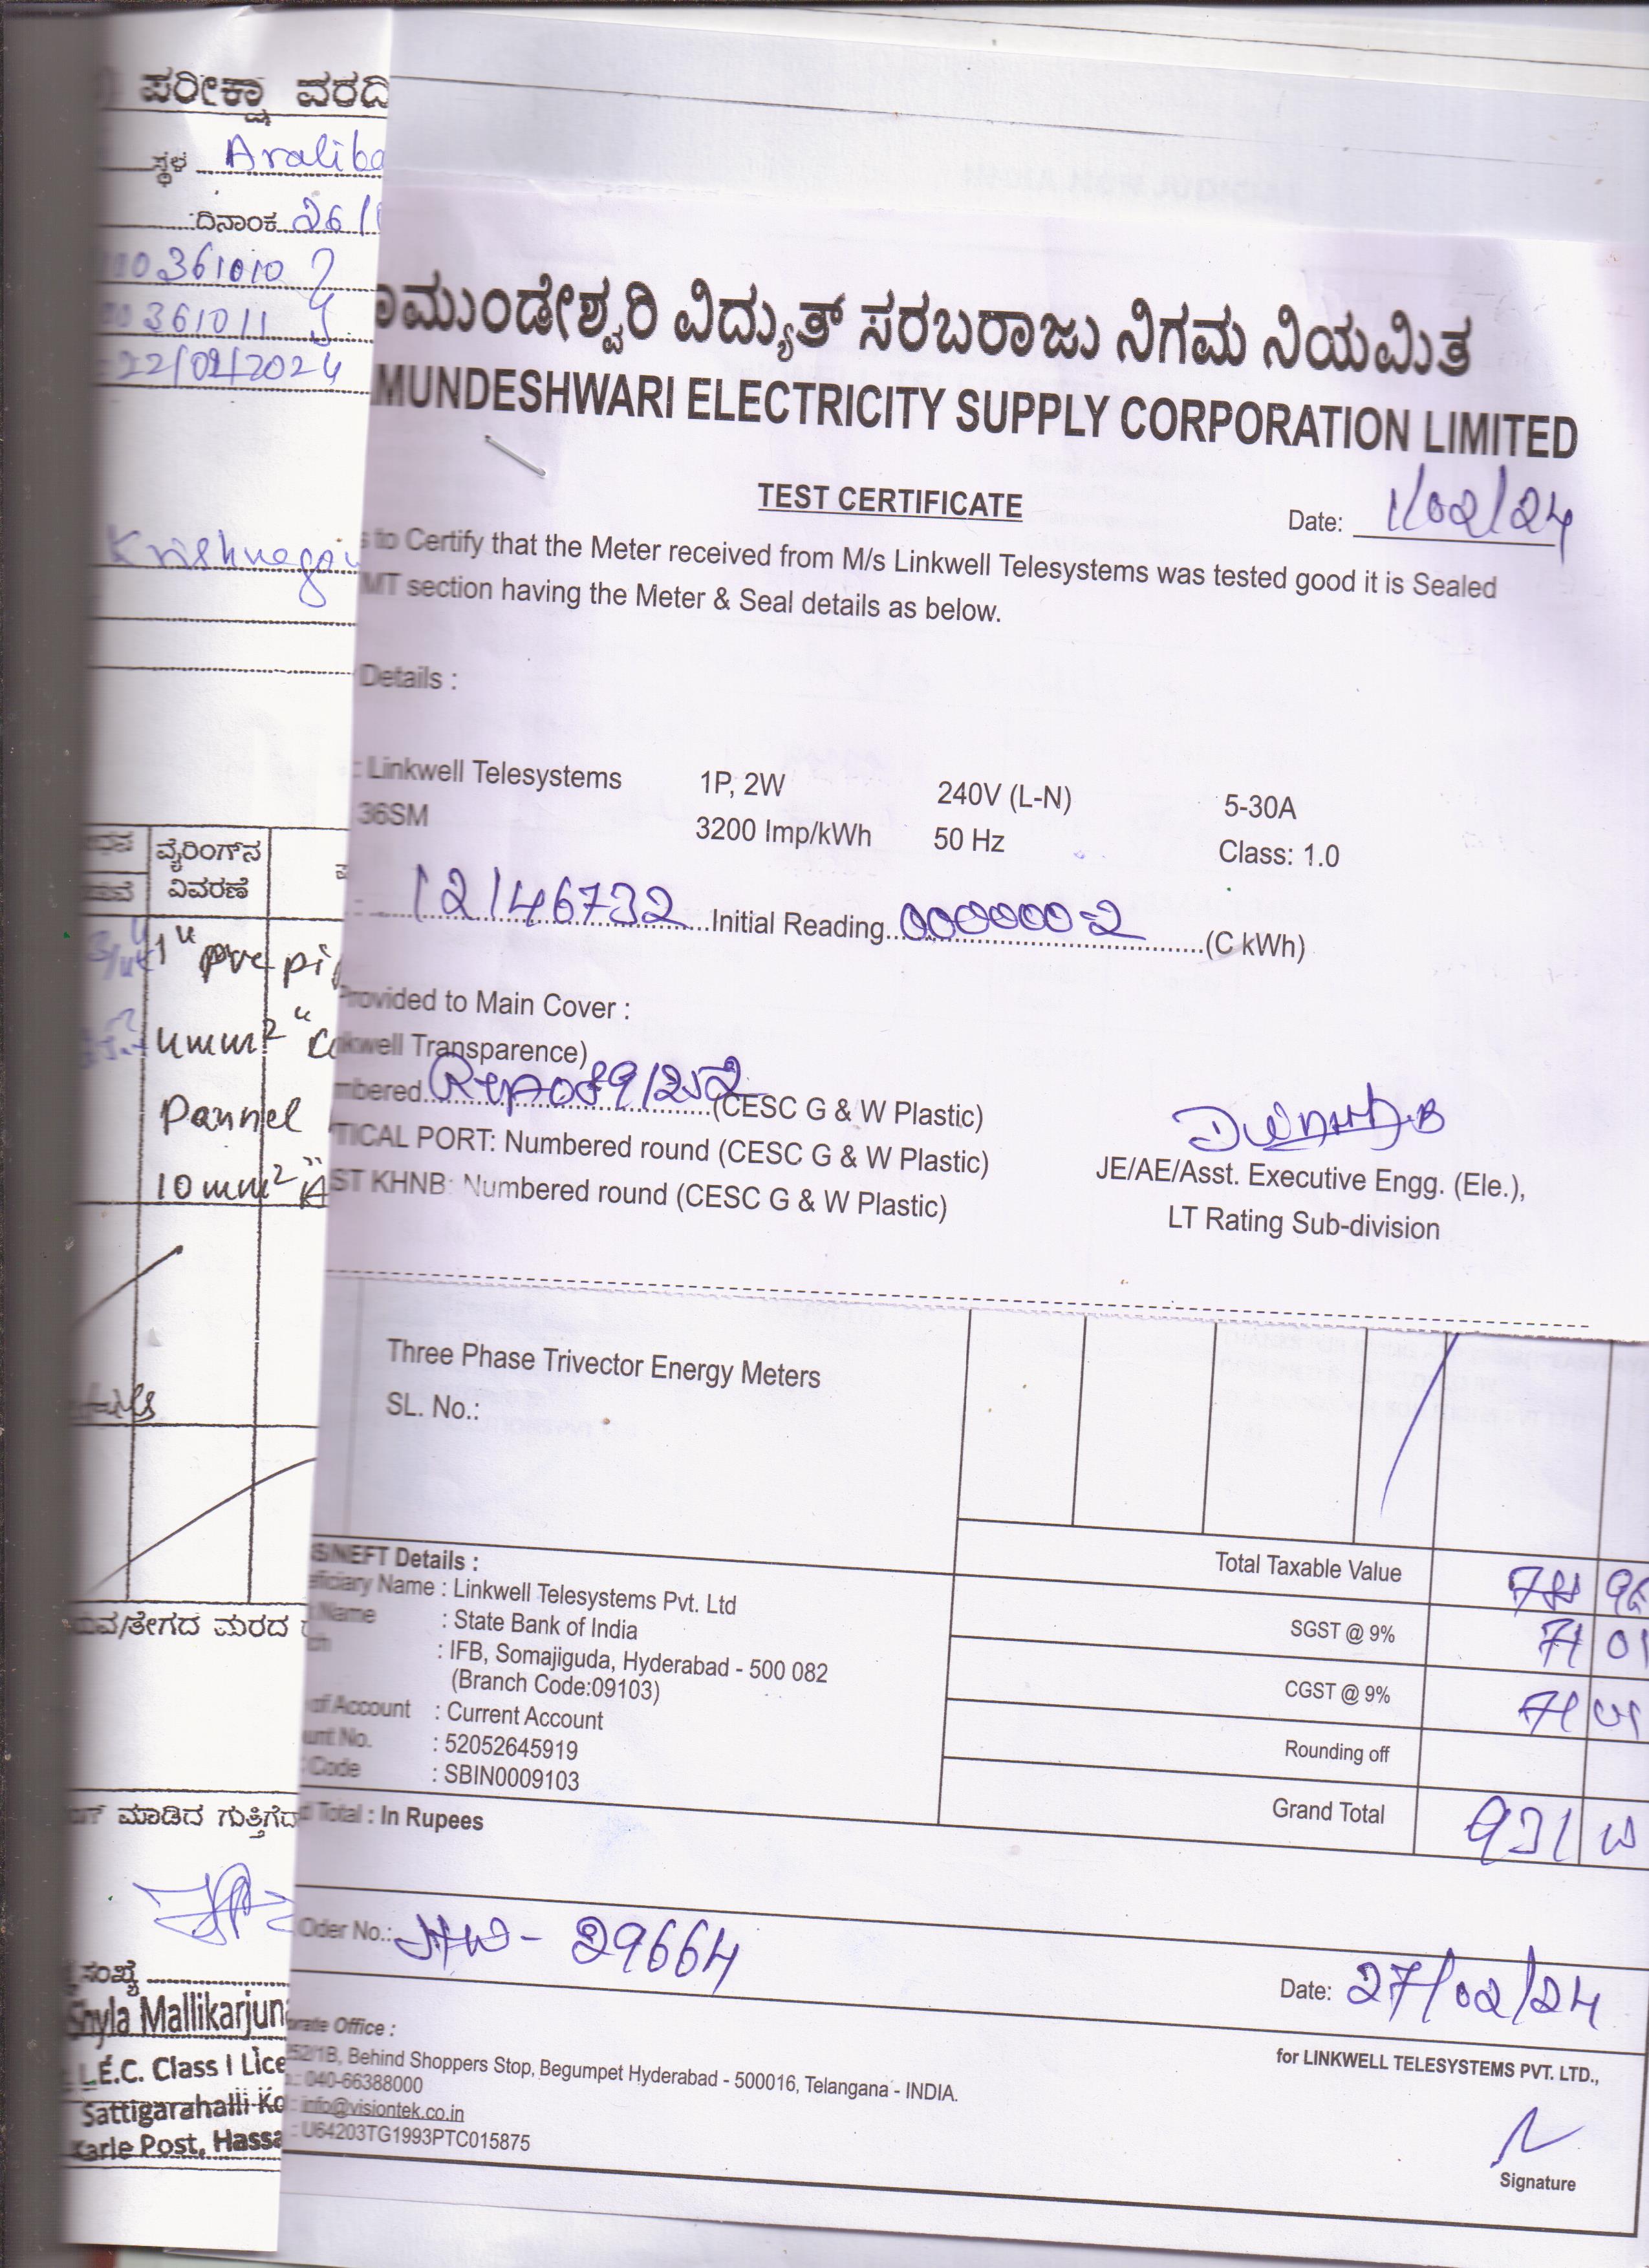 ಪರೀಕ್ಷಾ ವರದಿ
ಸ್ಥಳ Araliba
ದಿನಾಂಕ 26/1
361010
361011
22/02/2024
Krishnego
ವೈರಿಂಗ್‌ನ
ವಿವರಣೆ
1" pvc pi
4mm² "Co
Pannel
10mm² "A
ಮರದ
ಮಾಡಿದ ಗುತ್ತಿಗೆದ
ಸಂಖ್ಯೆ
Shyla Mallikarjuna
L.E.C. Class I Lice
Sattigarahalli Ko
Karle Post, Hassa
ಾಮುಂಡೇಶ್ವರಿ ವಿದ್ಯುತ್ ಸರಬರಾಜು ನಿಗಮ ನಿಯಮಿತ
MUNDESHWARI ELECTRICITY SUPPLY CORPORATION LIMITED
TEST CERTIFICATE
Date: 1/02/24
s to Certify that the Meter received from M/s Linkwell Telesystems was tested good it is Sealed
MT section having the Meter & Seal details as below.
Details :
: Linkwell Telesystems 1P, 2W 240V (L-N) 5-30A
36SM 3200 Imp/kWh 50 Hz Class: 1.0
12146732 Initial Reading 000000=2 (C kWh)
Provided to Main Cover :
kwell Transparence)
mbered (CESC G & W Plastic)
TICAL PORT: Numbered round (CESC G & W Plastic)
ST KHNB: Numbered round (CESC G & W Plastic)
JE/AE/Asst. Executive Engg. (Ele.),
LT Rating Sub-division
Three Phase Trivector Energy Meters
SL. No.:
S/NEFT Details :
eficiary Name : Linkwell Telesystems Pvt. Ltd
Name : State Bank of India
ch : IFB, Somajiguda, Hyderabad - 500 082
(Branch Code:09103)
of Account : Current Account
unt No. : 52052645919
Code : SBIN0009103
Total Taxable Value
SGST @ 9% 71 01
CGST @ 9% 71 01
Rounding off
Grand Total 931
d Total : In Rupees
Oder No.: 29664
Date: 27/02/24
orate Office :
52/1B, Behind Shoppers Stop, Begumpet Hyderabad - 500016, Telangana - INDIA.
.: 040-66388000
: info@visiontek.co.in
: U64203TG1993PTC015875
for LINKWELL TELESYSTEMS PVT. LTD.,
Signature